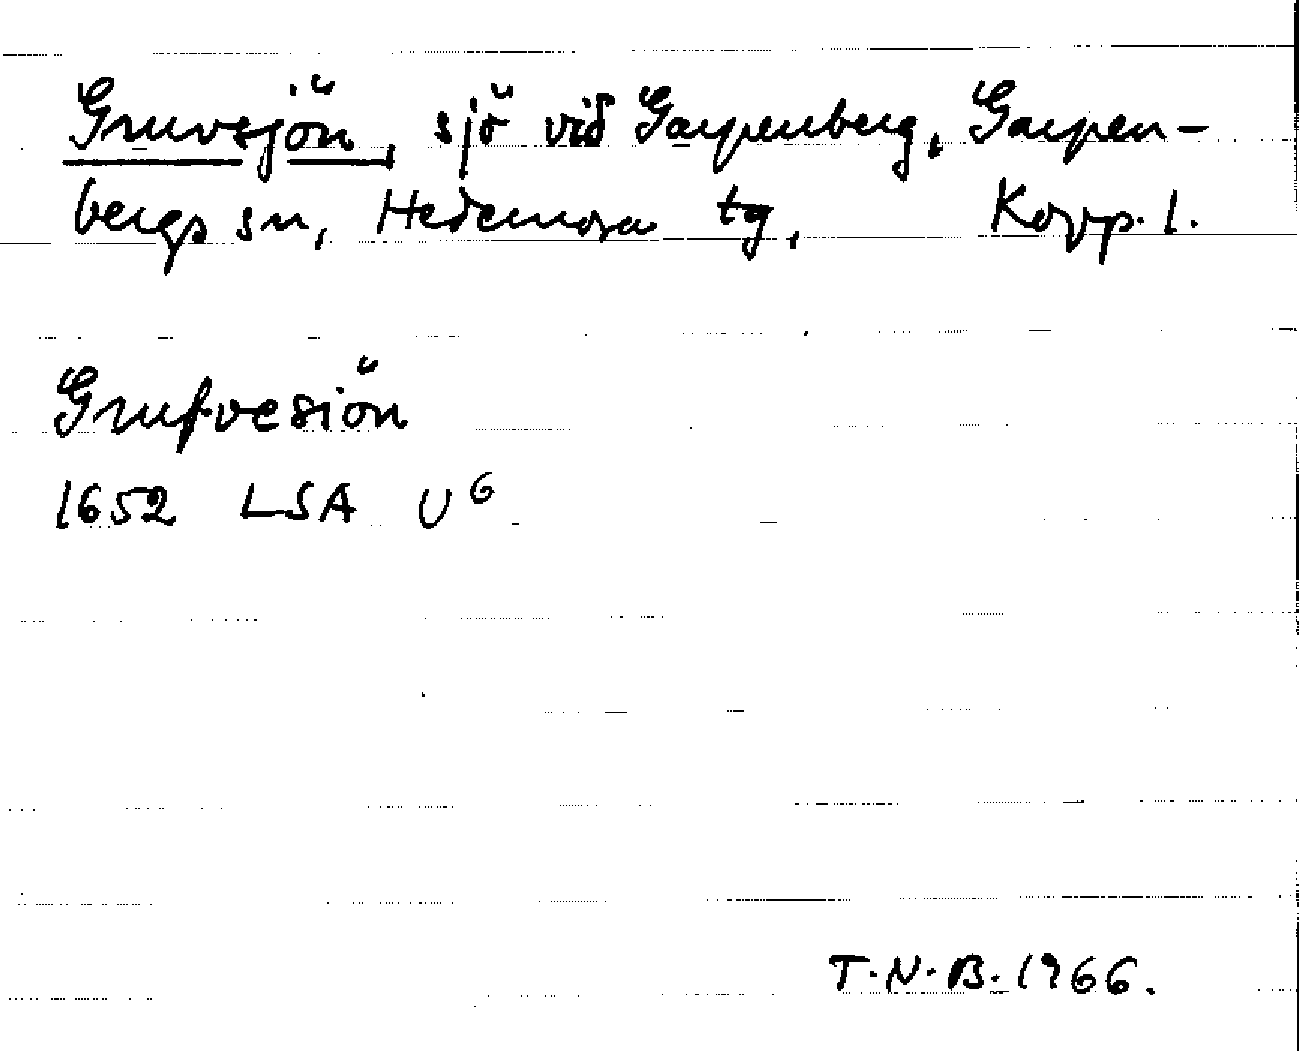 Gruvsjön, sjö vid Garpenberg, Garpen-
bergs sn, Hedemora tg, Kopp. l.
Grufvesiön
1652 LSA U6
T.N.B. 1966.